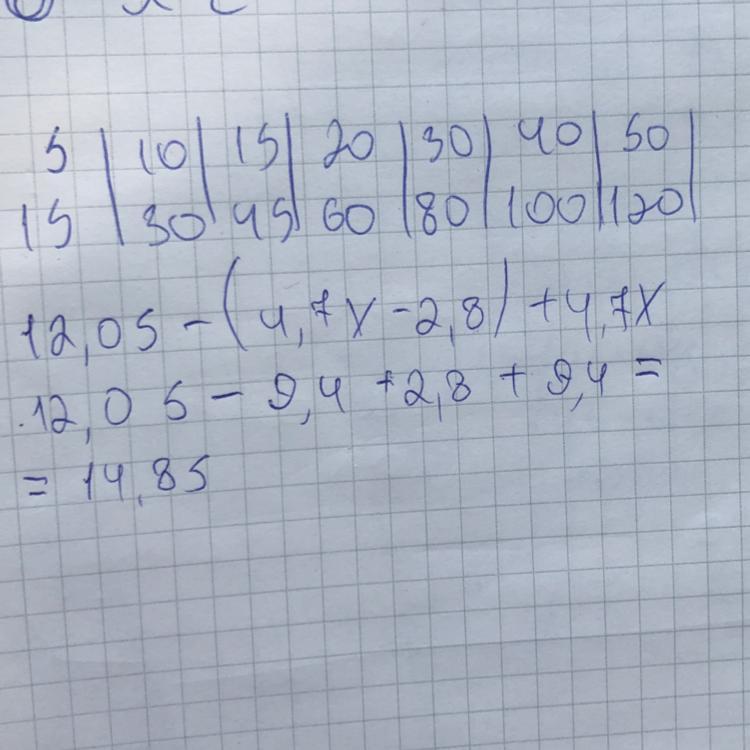 5 | 10 | 15 | 20 | 30 | 40 | 50 |
15 | 30 | 45 | 60 | 80 | 100 | 120 |
12,05 - (4,7x - 2,8) + 4,7x
12,05 - 9,4 + 2,8 + 9,4 =
= 14,85